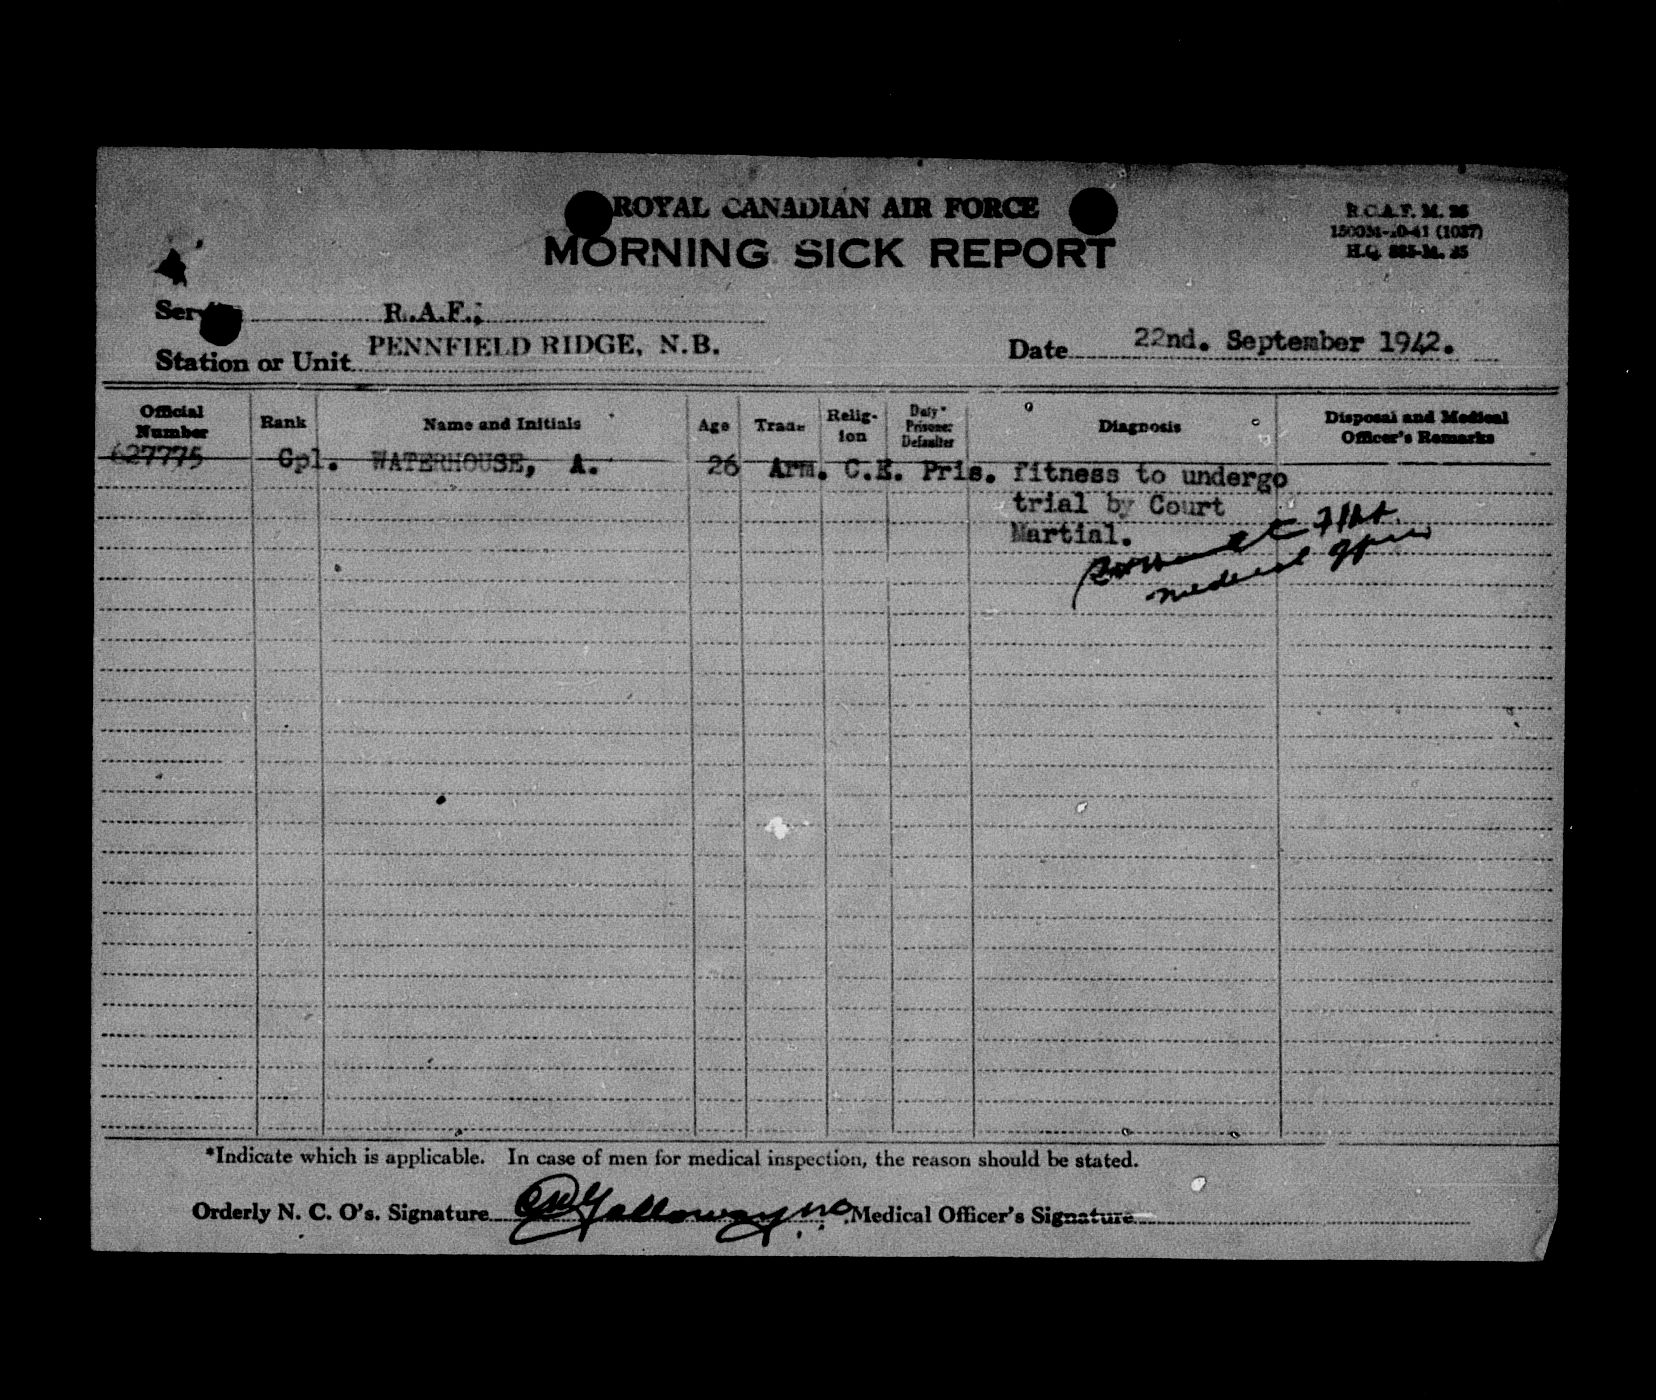 ROYAL CANADIAN AIR FORCE
MORNING SICK REPORT
R.C.A.F. M. 26
H.Q. 885-M. 26
R.A.F.;
Station or Unit PENNFIELD RIDGE, N.B.
Date 22nd. September 1942.
Official Number Rank Name and Initials Age Trade Religion Duty* Prisoner Defaulter Diagnosis Disposal and Medical Officer's Remarks
627775 Cpl. WATERHOUSE, A. 26 Arm. C.E. Pris. fitness to undergo
trial by Court
Martial.
F/Lt
medical officer
*Indicate which is applicable. In case of men for medical inspection, the reason should be stated.
Orderly N. C. O's. Signature Galloway Medical Officer's Signature